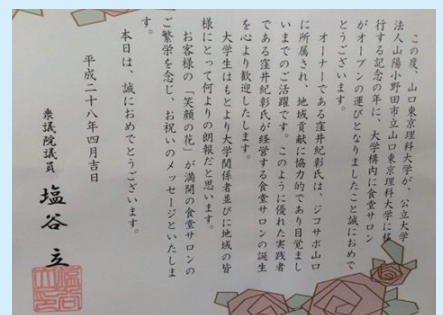 この度、山口東京理科大学が、公立大学
法人山陽小野田市立山口東京理科大学に移
行する記念の年に、大学構内に食堂サロン
がオープンの運びとなりましたこと誠におめで
とうございます。
オーナーである窪井紀彰氏は、ジコサポ山口
に所属され、地域貢献に協力的であり目覚まし
いまでのご活躍です。このように優れた実践者
である窪井紀彰氏が経営する食堂サロンの誕生
を心より歓迎したします。
大学生はもとより大学関係者並びに地域の皆
様にとって何よりの朗報だと思います。
お客様の「笑顔の花」が満開の食堂サロンの
ご繁栄を念じ、お祝いのメッセージといたしま
す。
本日は、誠におめでとうございます。
平成二十八年四月吉日
衆議院議員 塩谷 立